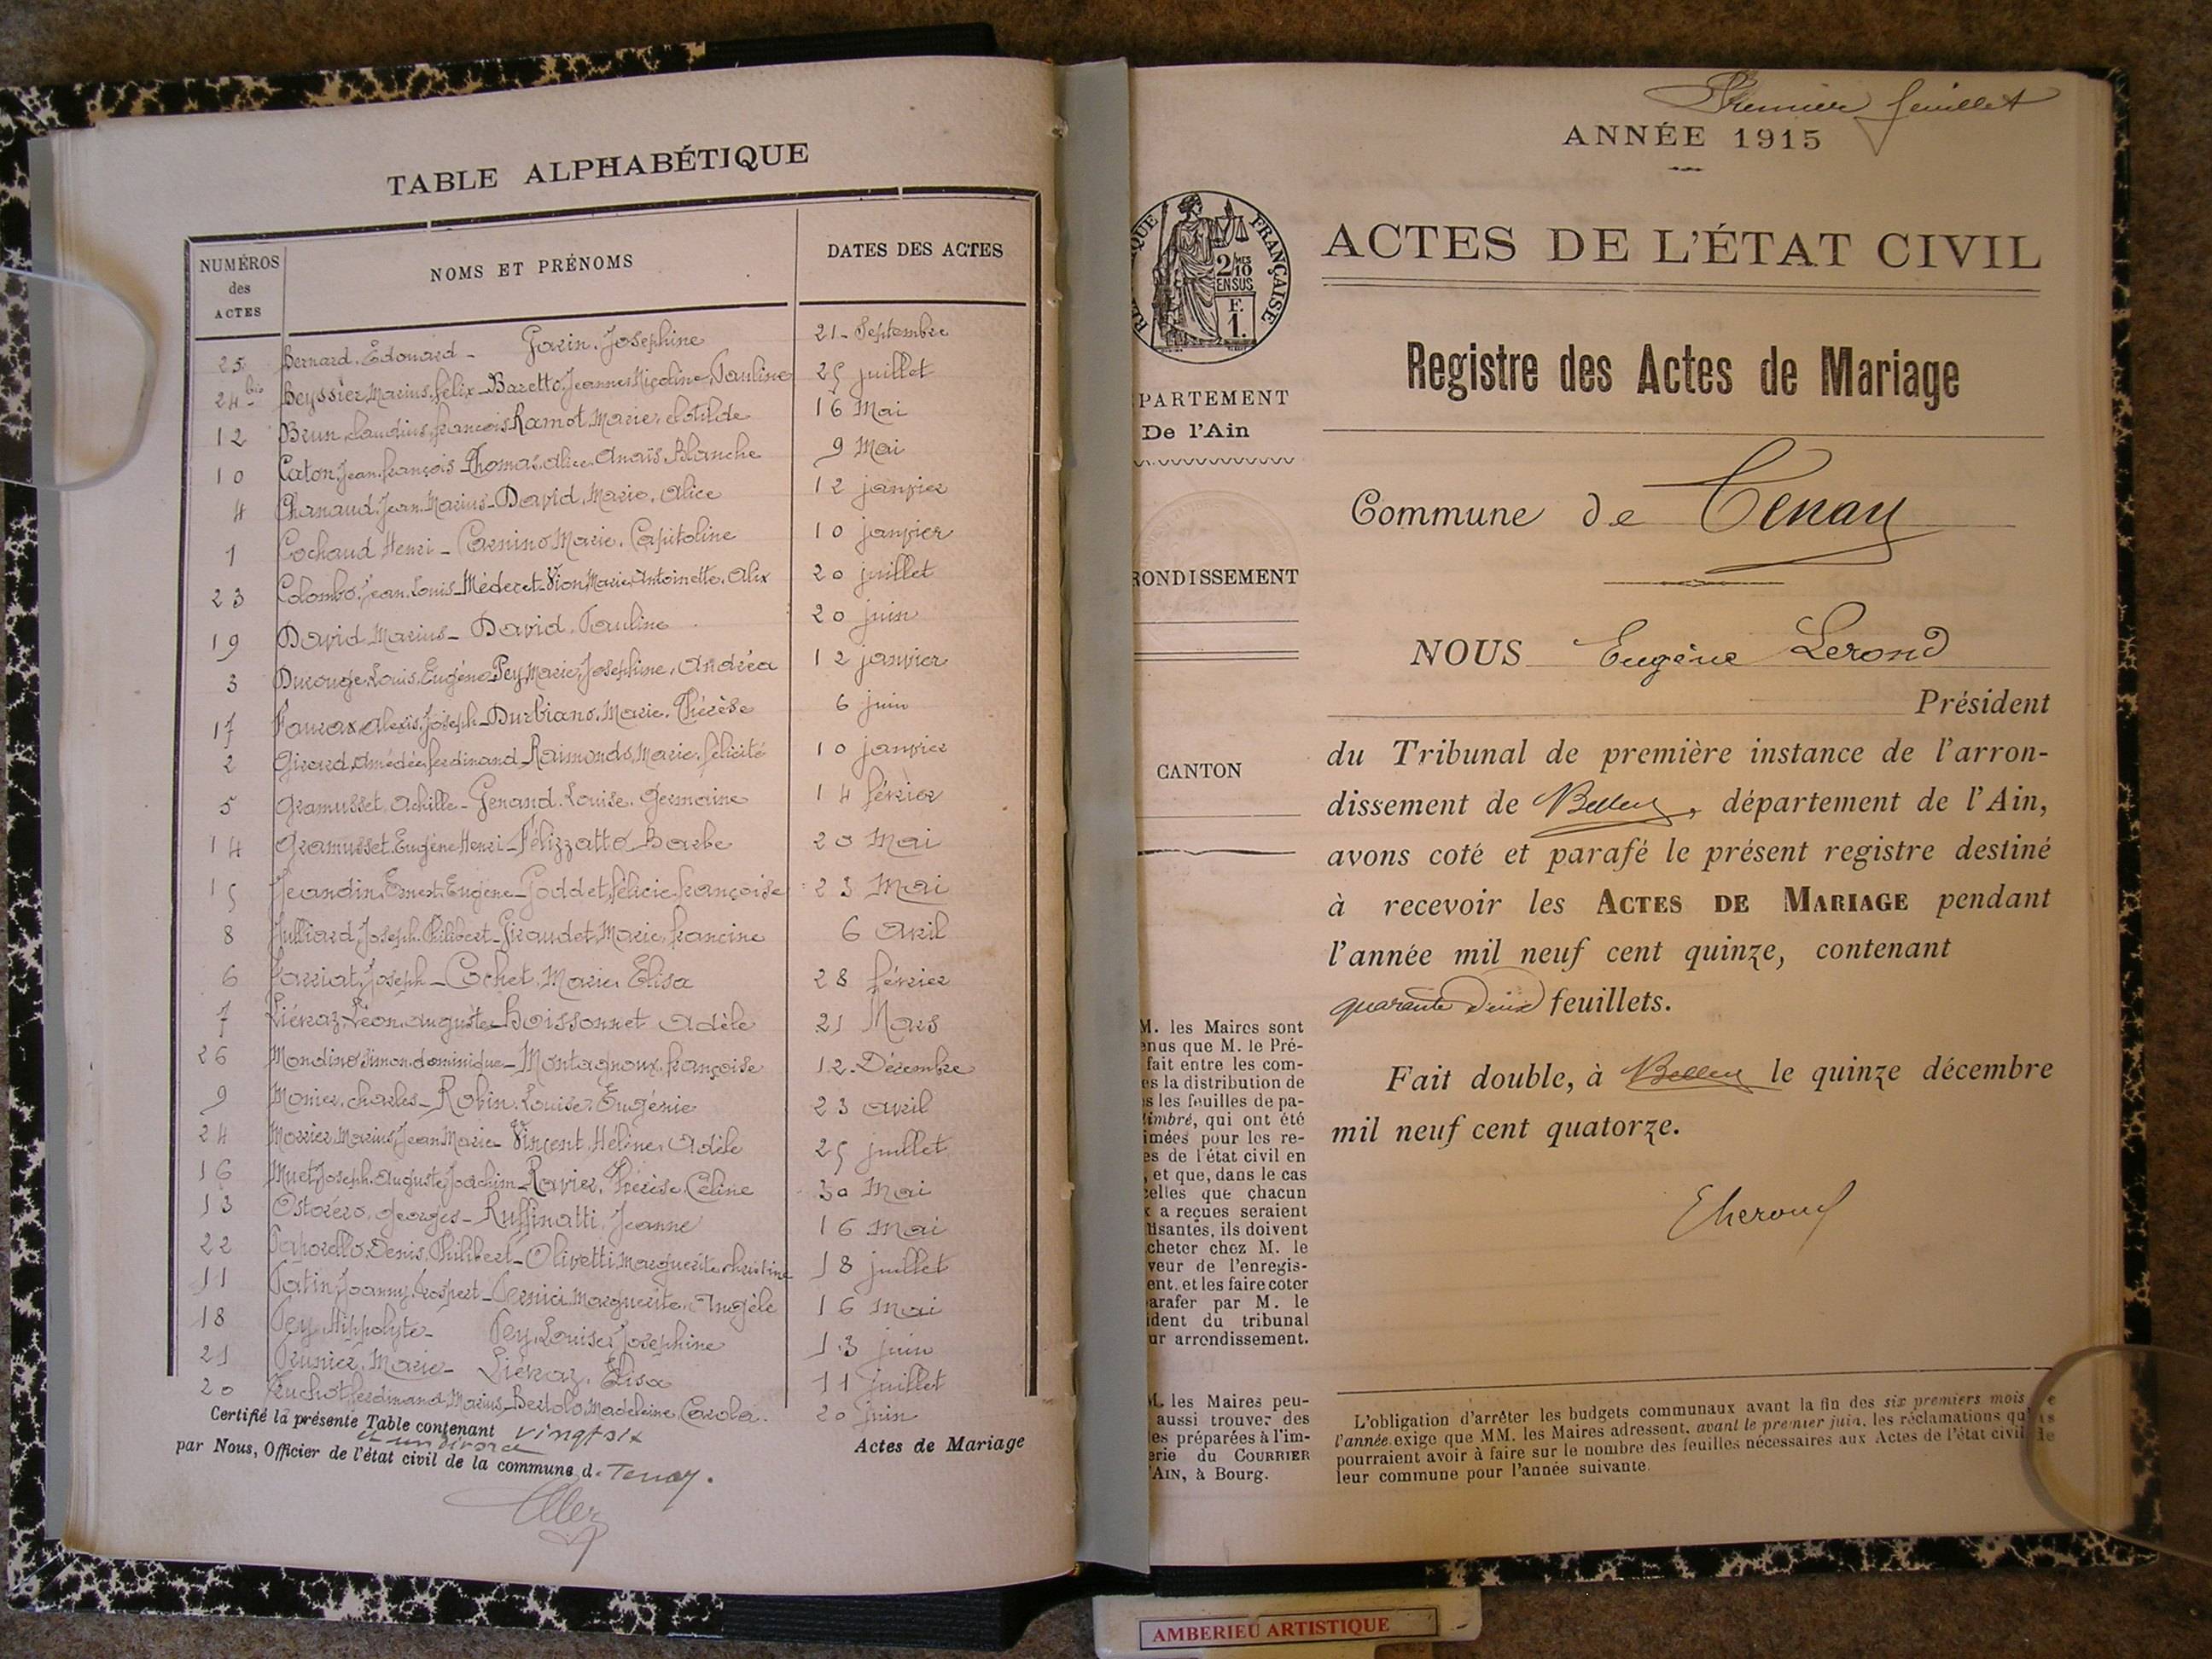 TABLE ALPHABÉTIQUE
NUMÉROS des ACTES
NOMS ET PRÉNOMS
DATES DES ACTES
25 Bernard. Édouard - Gorin. Josephine 21 - Septembre
24 bis Beyssier, Marius, félix - Baretto, Jeanne, Niçoline, Pauline 25 juillet
12 Brun, claudius, françois Ramot, Marie, clotilde 16 Mai
10 Caton, Jean, françois - Thomas, alice, Anaïs, Blanche 9 Mai
4 Chanaud, Jean, Marius - David, Marie, Alice 12 janvier
1 Cochaud Henri - Carnino Marie, Capitoline 10 janvier
23 Colombo, Jean, Louis - Méderet-Vion, Marie, Antoinette, Alix 20 juillet
19 David Marius - David, Pauline 20 juin
3 Durouge, Louis, Eugène - Pey, Marie, Josephine, Andréa 12 janvier
17 Favrax, alexis, Joseph - Durbiano, Marie, Thérèse 6 juin
2 Girard, Amédée, ferdinand - Raimondo, Marie, félicité 10 janvier
5 Gramusset, Achille - Genand, Louise, Germaine 14 février
14 Gramusset, Eugène Henri - Félizzatto Barbe 20 Mai
15 Jeandin, Ernest, Eugène - Goddet, félicie, françoise 23 Mai
8 Julliard, Joseph, Philibert - Giraudet, Marie, francine 6 Avril
6 Larriat, Joseph - Cochet, Marie, Elisa 28 février
7 Liévraz, Léon, auguste - Boissonnet Adèle 21 Mars
26 Mondino Simon, dominique - Montagnoux, françoise 12 - Décembre
9 Monier, charles - Robin, Louise, Eugénie 23 avril
24 Morrier, Marius, Jean Marie - Vincent, Hélène, Adèle 25 juillet
16 Muet, Joseph, Auguste, Joachim - Ravier, Thérèse, Céline 30 Mai
13 Ostorero, Georges - Ruffinatti, Jeanne 16 Mai
22 Paporello, Denis, Philibert - Olivetti, Marguerite, christine 18 juillet
11 Patin, Joanny, Prospert - Pernici, Marguerite, Angèle 16 mai
18 Pey, Hippolyte - Pey, Louise, Josephine 13 juin
21 Prunier, Marie - Liévraz, Elisa 11 Juillet
20 Ruchot, ferdinand, Marius - Bertolo, Madeleine, Carola. 20 Juin
Certifié la présente Table contenant vingtsix Actes de Mariage
et un divorce
par Nous, Officier de l'état civil de la commune d. Tenay.
Premier feuillet
ANNÉE 1915
RÉPUBLIQUE FRANÇAISE
2/MES 10 EN SUS
F. 1.
ACTES DE L'ÉTAT CIVIL
Registre des Actes de Mariage
PARTEMENT
De l'Ain
Commune de Tenay
RONDISSEMENT
NOUS Eugène Lerond
Président
CANTON
du Tribunal de première instance de l'arron-
dissement de Belley, département de l'Ain,
avons coté et parafé le présent registre destiné
à recevoir les ACTES DE MARIAGE pendant
l'année mil neuf cent quinze, contenant
quarante deux feuillets.
Fait double, à Belley le quinze décembre
mil neuf cent quatorze.
ELerond
M. les Maires sont
enus que M. le Pré-
fait entre les com-
es la distribution de
s les feuilles de pa-
timbré, qui ont été
imées pour les re-
es de l'état civil en
, et que, dans le cas
celles que chacun
x a reçues seraient
fisantes, ils doivent
cheter chez M. le
veur de l'enregis-
ent, et les faire coter
arafer par M. le
ident du tribunal
ur arrondissement.
M. les Maires peu-
aussi trouver des
es préparées à l'im-
erie du COURRIER
'AIN, à Bourg.
L'obligation d'arrêter les budgets communaux avant la fin des six premiers mois de
l'année exige que MM. les Maires adressent, avant le premier juin, les réclamations qu'ils
pourraient avoir à faire sur le nombre des feuilles nécessaires aux Actes de l'état civil de
leur commune pour l'année suivante.
AMBERIEU ARTISTIQUE